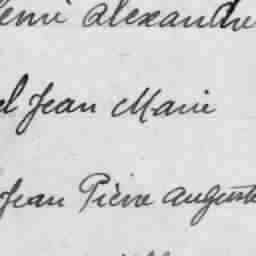 emi Alexandre
el Jean Marie
Jean Pierre Auguste